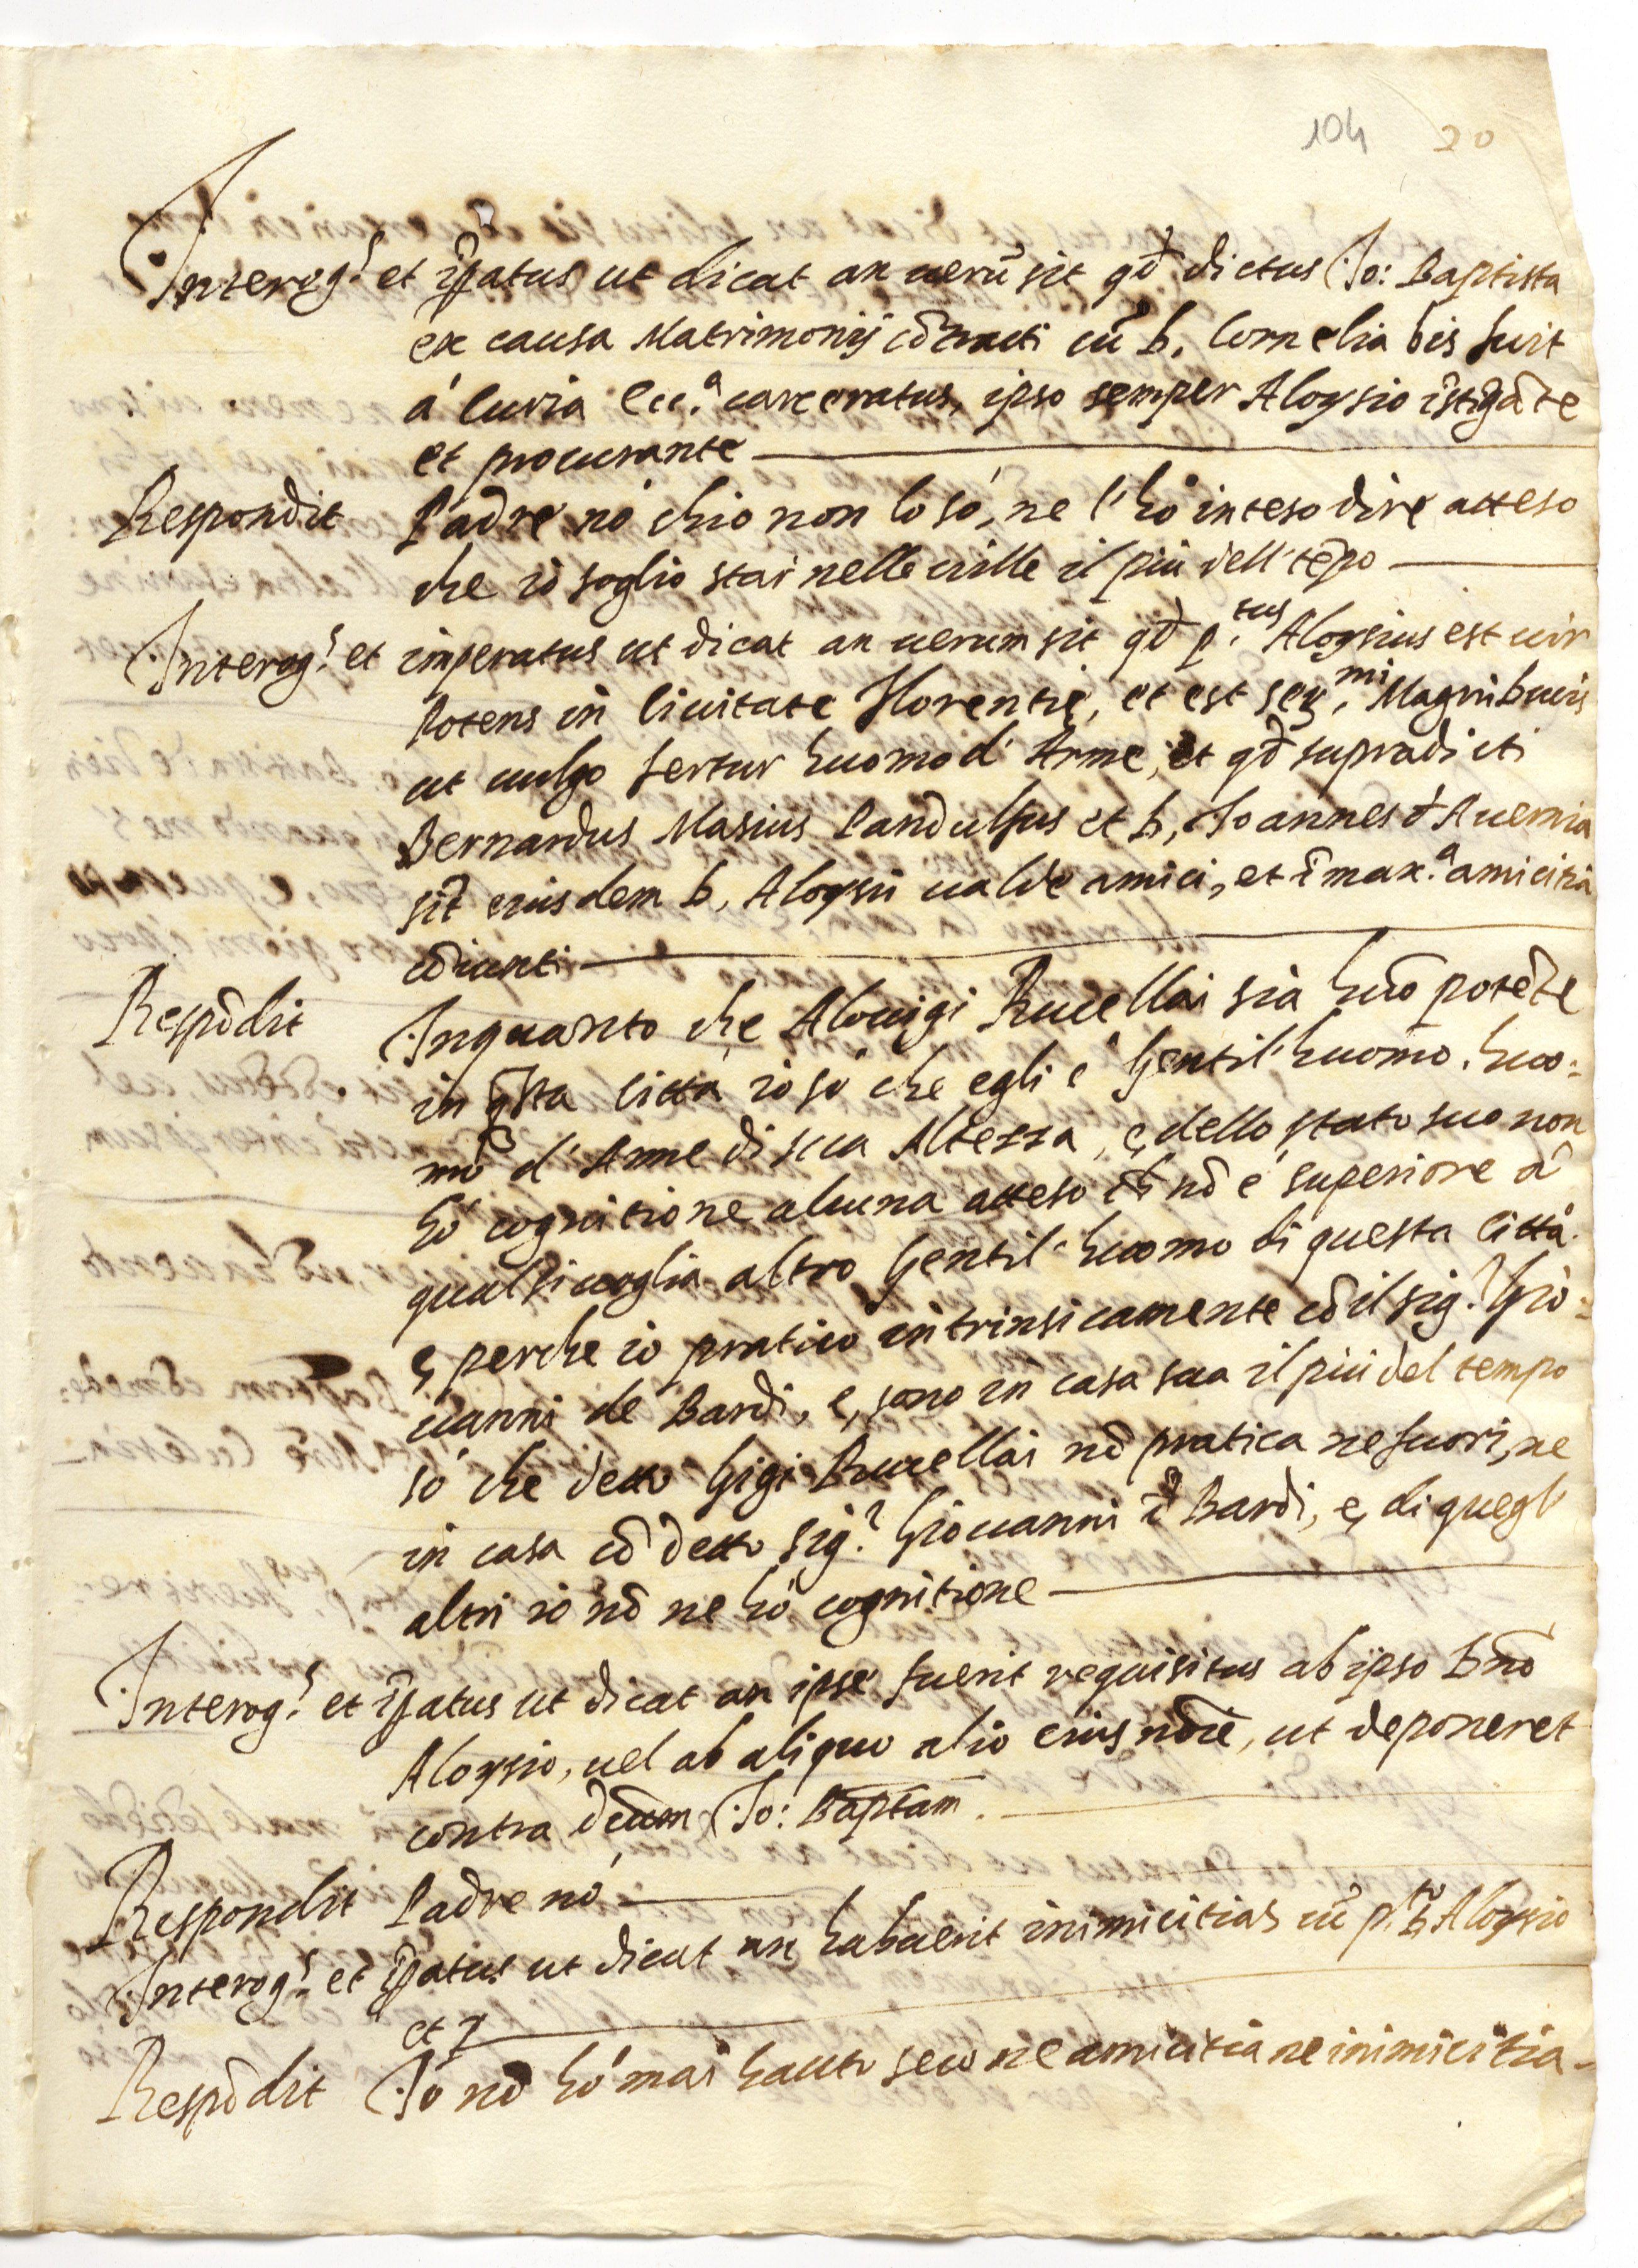 104 20
Interog.s et īpatus ut dicat an uerū sit qđ dictus Io: Baptista
ex causa Matrimonij cōtracti cū D. Cornelia bis fuit
á Curia Ecc.a carceratus, ipso semper Aloysio īstigāte
et procurante
Respondit Padre nó chio non lo só, ne l'hó inteso dire atteso
che io soglio star nelle uille il piu dell tēpo
Interog.s et imperatus ut dicat an uerum sit qđ p.tus Aloysius est uir
Potens in Ciuitate Florentię, et est Ser.mi Magni Ducis
ut uulgo fertur huomo d'Arme, et qđ supradicti
Bernardus Masius Pandulfus et D, Joannes đ Auernia
sīt eiusdem D, Aloysii ualde amici, et ī max.a amicitia
cōiuncti
Respōdit Inquanto che Alouigi Rucellai sia huō potēte
in q̄sta Citta io só che egli é Gentil'huomo. huo:
mō d'Arme di sua Altezza, e, dello stato suo non
hó cognitione alcuna atteso ch̄ nō é superiore á
qualsiuoglia altro Gentil'huomo di questa Cittá.
e, perche io pratico intrinsicamente cō il sig.r Gio:
uanni de Bardi, e, sono in casa sua il piú del tempo
só che detto Gigi Rucellai nō pratica ne fuori, ne
in casa cō detto Sig.r Giouanni đ Bardi, e, di quegli
altri io nō ne hó cognitione
Interog.s et īpatus ut dicat an ipse fuerit requisitus ab ipso Dno
Aloysio, uel ab aliquo alio eius nōīe, ut deponeret
contra dictum Io: Bap̄tam.
Respondit Padre nó
Interog.s et īpatus ut dicat an habuerit inimicitias cū p.to D Aloysio
et
Respōdit Io nō hó mai hauto seco ne amicitia ne inimicitia